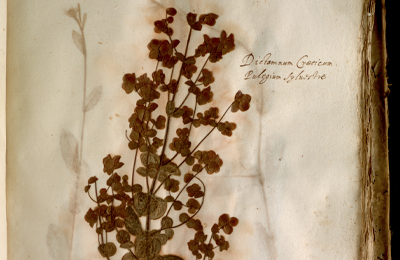 Dictamnum Creticum
Pulegium sylvestre